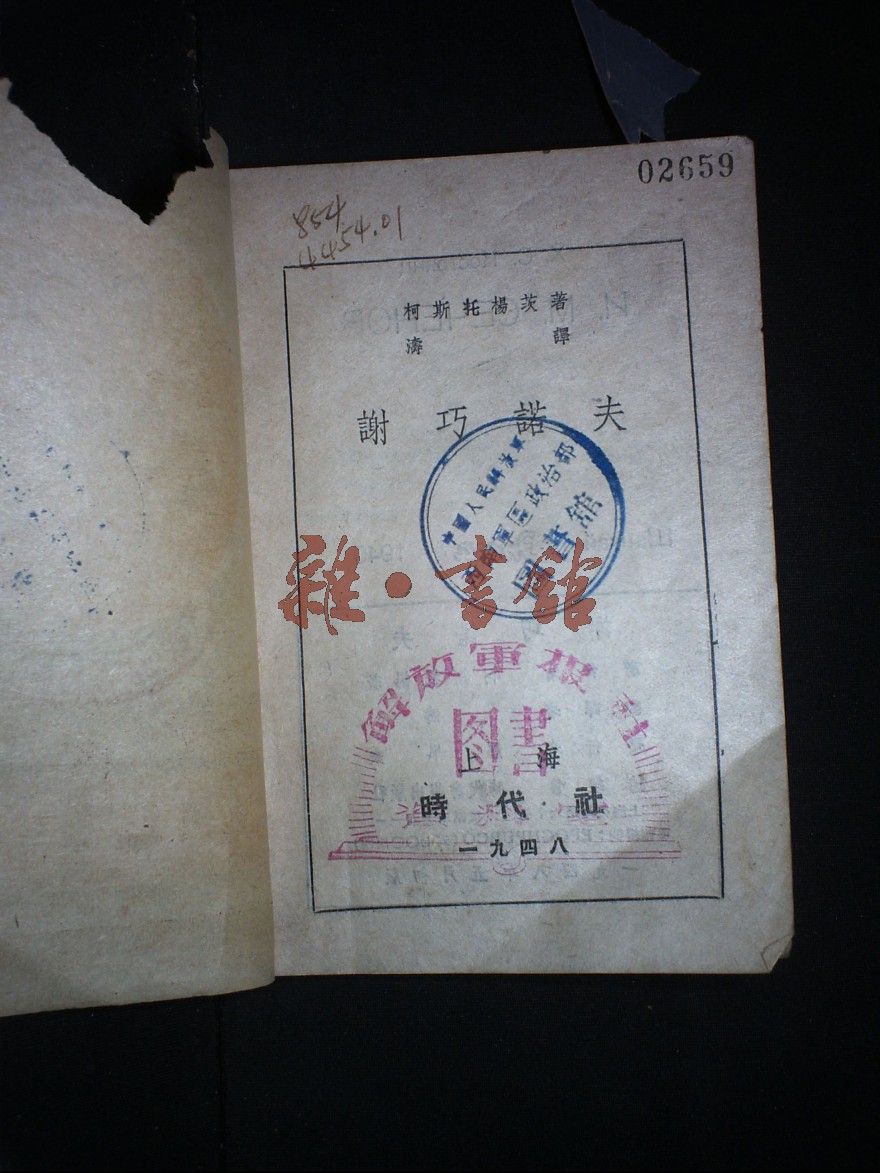 02659
854
柯斯托楊茨著
濤 譯
謝巧諾夫
中國人民解放軍
西南軍區政治部
圖書館
雜·書館
解放軍报社
图書
上海
時代社
一九四八